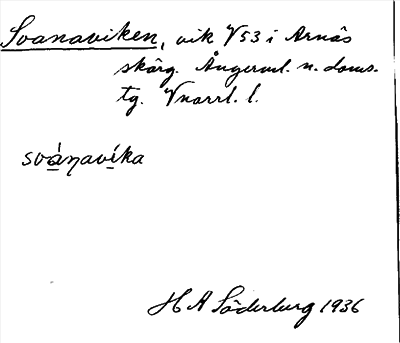 Svanaviken, vik V 53 i Arnäs
skärg. Ångerml. n. doms.
tg. Vnorrl. l.
svánavíka
H A Söderburg 1936